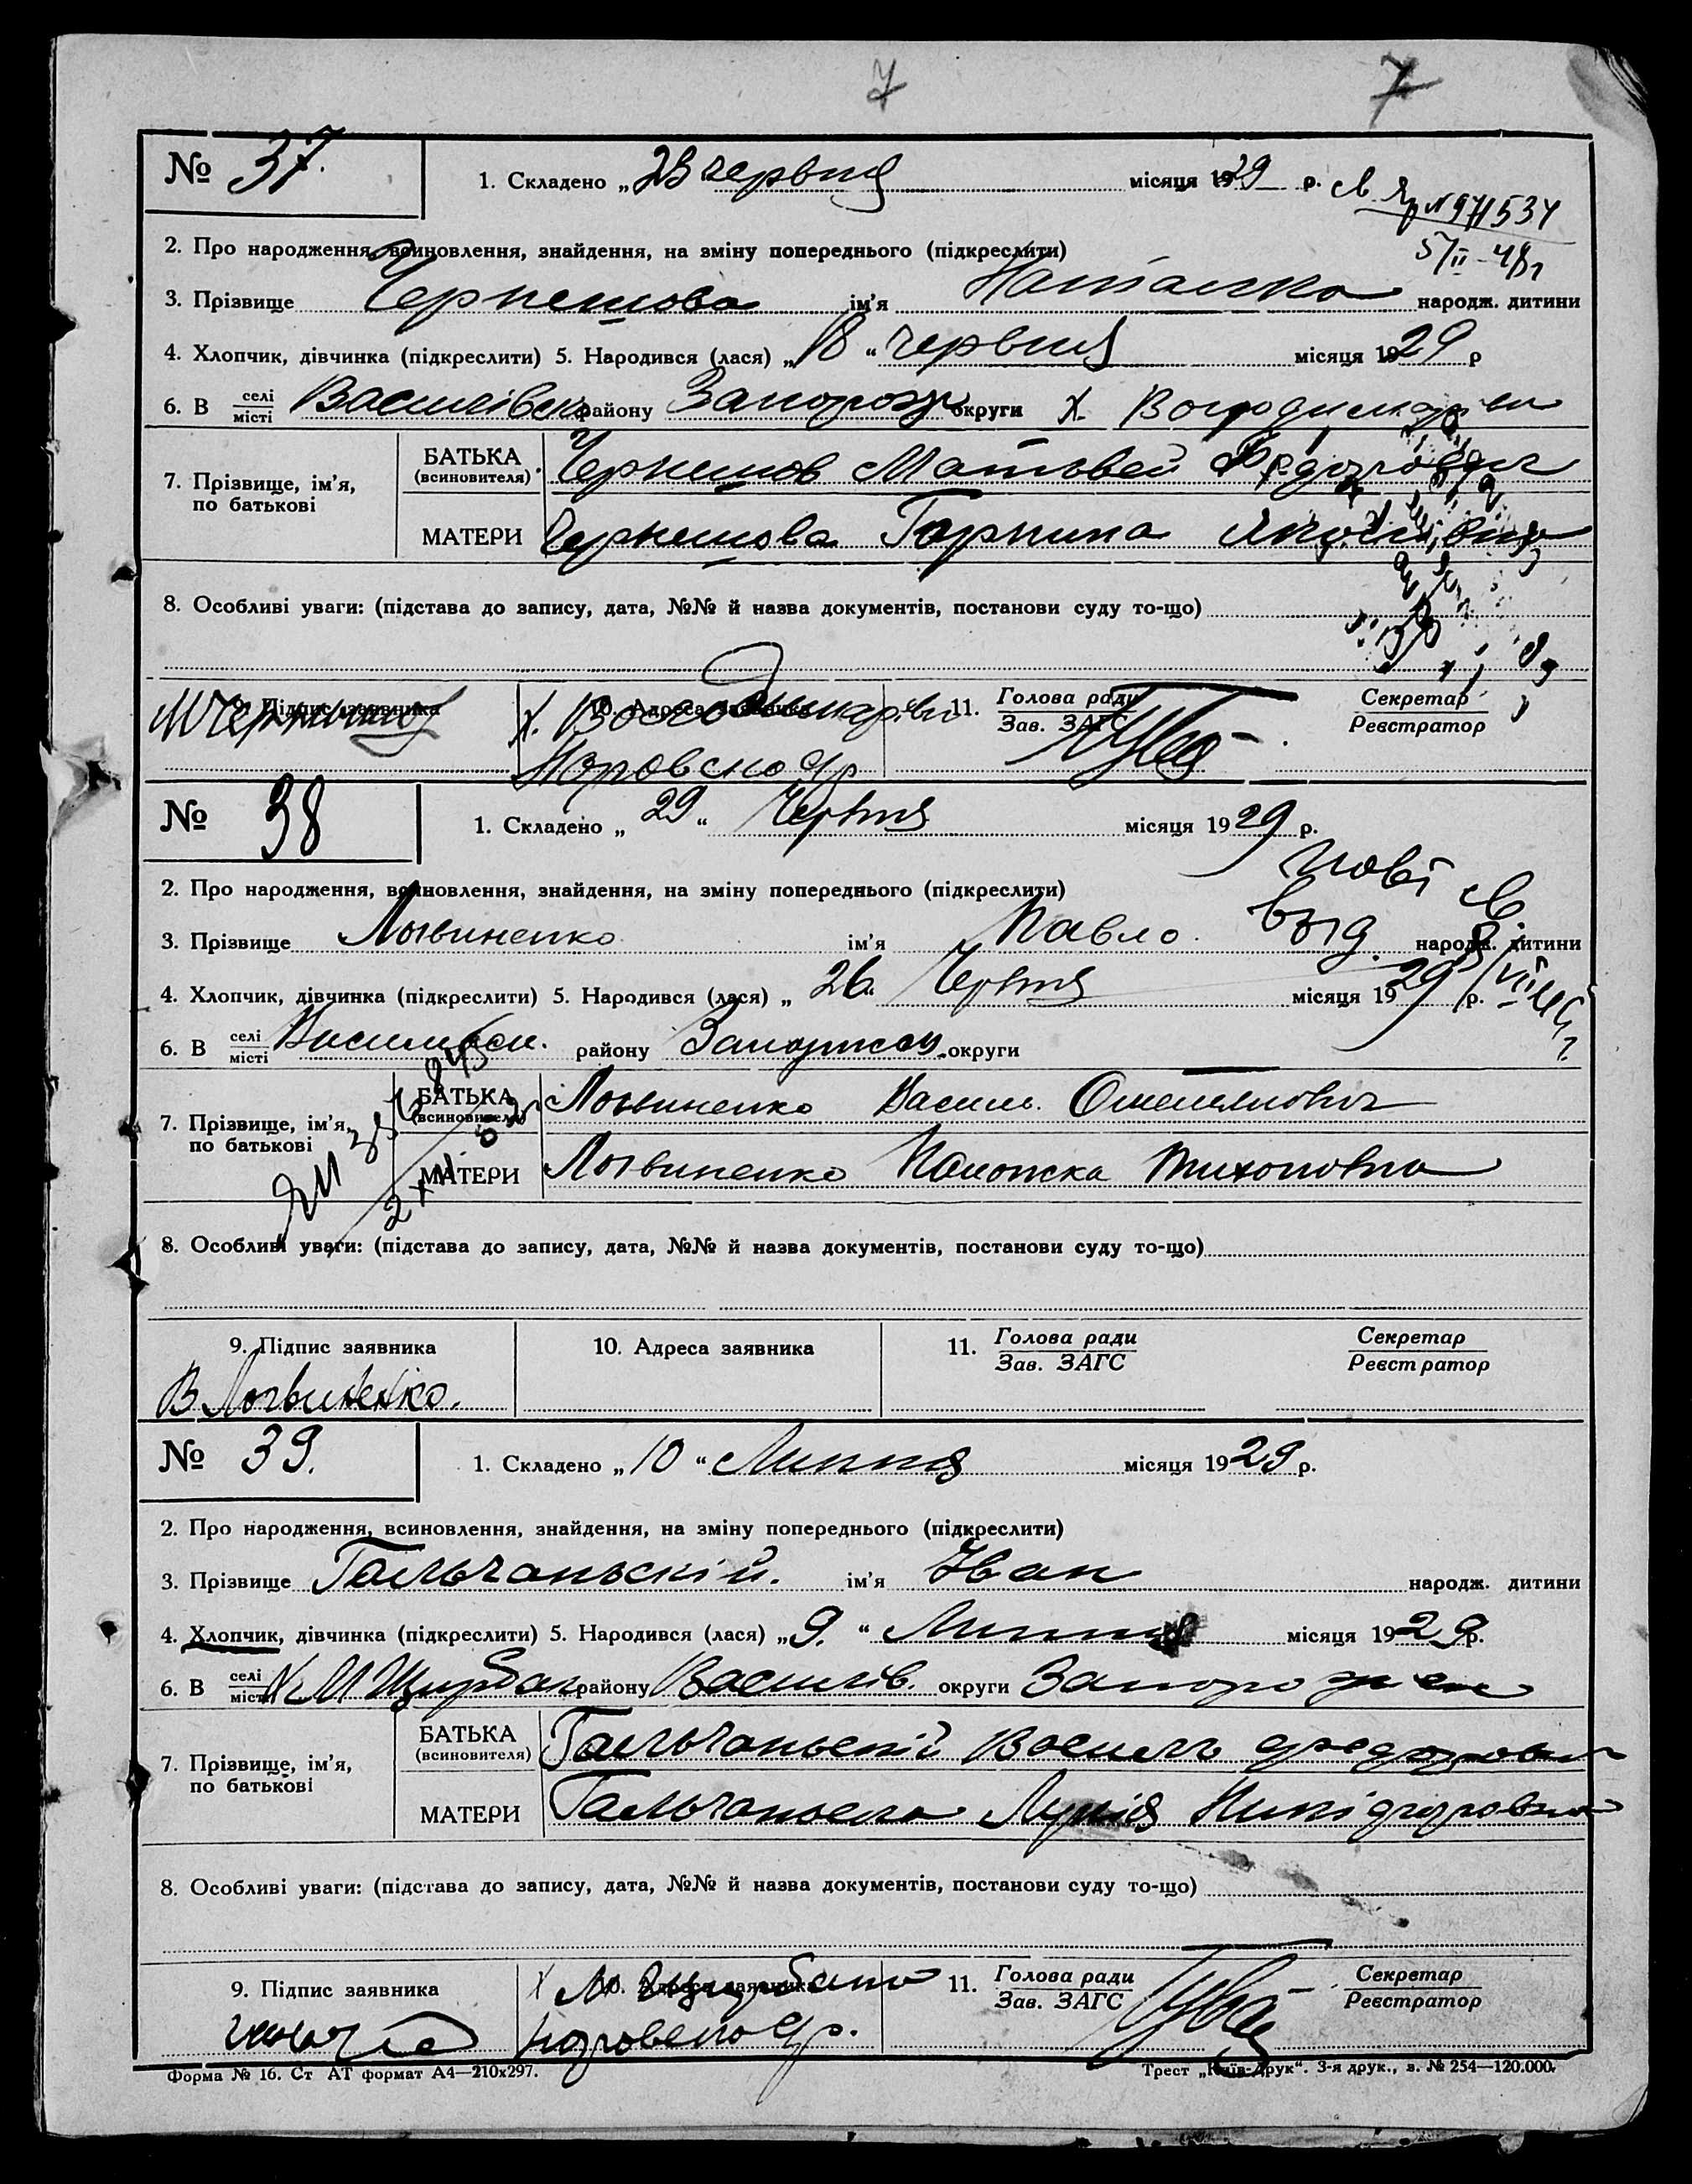 7 7
№ 37. 1. Складено „23 червня місяця 1929 р.
св. Яр № 971534
5/II-48 г
2. Про народження, всиновлення, знайдення, на зміну попереднього (підкреслити)
3. Прізвище Чернешова ім'я Наталка народж. дитини
4. Хлопчик, дівчинка (підкреслити) 5. Народився (лася) „18“ червня місяця 1929 р
6. В селі/місті Василівськ району Запорож округи х.
7. Прізвище, ім'я, по батькові БАТЬКА (всиновителя) Чернешов Матвей Федорович
МАТЕРИ Чернешова Горпина
8. Особливі уваги: (підстава до запису, дата, №№ й назва документів, постанови суду то-що)
9. Підпис заявника 10. Адреса заявника 11. Голова ради Секретар
Зав. ЗАГС Реєстратор
№ 38 1. Складено „29“ Червня місяця 1929 р.
2. Про народження, всиновлення, знайдення, на зміну попереднього (підкреслити)
3. Прізвище Логвиненко ім'я Павло народж. дитини
4. Хлопчик, дівчинка (підкреслити) 5. Народився (лася) „26“ Червня місяця 1929 р.
6. В селі/місті району округи
7. Прізвище, ім'я, по батькові БАТЬКА (всиновителя) Логвиненко Васил. Омелянович
МАТЕРИ Логвиненко Тихоновна
8. Особливі уваги: (підстава до запису, дата, №№ й назва документів, постанови суду то-що)
9. Підпис заявника 10. Адреса заявника 11. Голова ради Секретар
Зав. ЗАГС Реєстратор
В Логвиненко.
№ 39. 1. Складено „10“ Липня місяця 1929 р.
2. Про народження, всиновлення, знайдення, на зміну попереднього (підкреслити)
3. Прізвище Гальчаньскій. ім'я Іван народж. дитини
4. Хлопчик, дівчинка (підкреслити) 5. Народився (лася) „9.“ Липня місяця 1929 р.
6. В селі/місті М Щербак району Василів. округи Запорожск
7. Прізвище, ім'я, по батькові БАТЬКА (всиновителя) Гальчаньскій Василь Федорович
МАТЕРИ Гальчаньска Лукія Никіфоровна
8. Особливі уваги: (підстава до запису, дата, №№ й назва документів, постанови суду то-що)
9. Підпис заявника 10. Адреса заявника 11. Голова ради Секретар
Зав. ЗАГС Реєстратор
Форма № 16. Ст АТ формат А4—210х297. Трест „Київ-Друк“. 3-я друк., з. № 254—120.000.